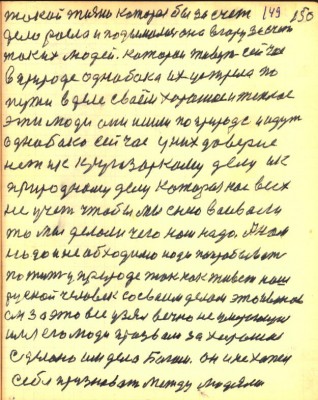 такой жизни которая бы за счет 149 150
дело росла и подымалась она в гору за счет
таких людей. которые живут сейчас
в природе однобоко их цетрела по
пути в деле своем хорошее и теплое
эти люди они и шли по природе и идут
однобоко сейчас у них доверие
нет ни к
природному делу которая нас всех
не учет чтобы мы с нею воевали
то мы делали чего нам надо. А нам
людям необходимо надо попробывать
пожить у природе так как живет наш
русской человек со своим делом это
он за это все узял вечно не умирающие
или его люди призвали за хорошее
сделано им дело Богом. он и не хочет
себя признавать между людями